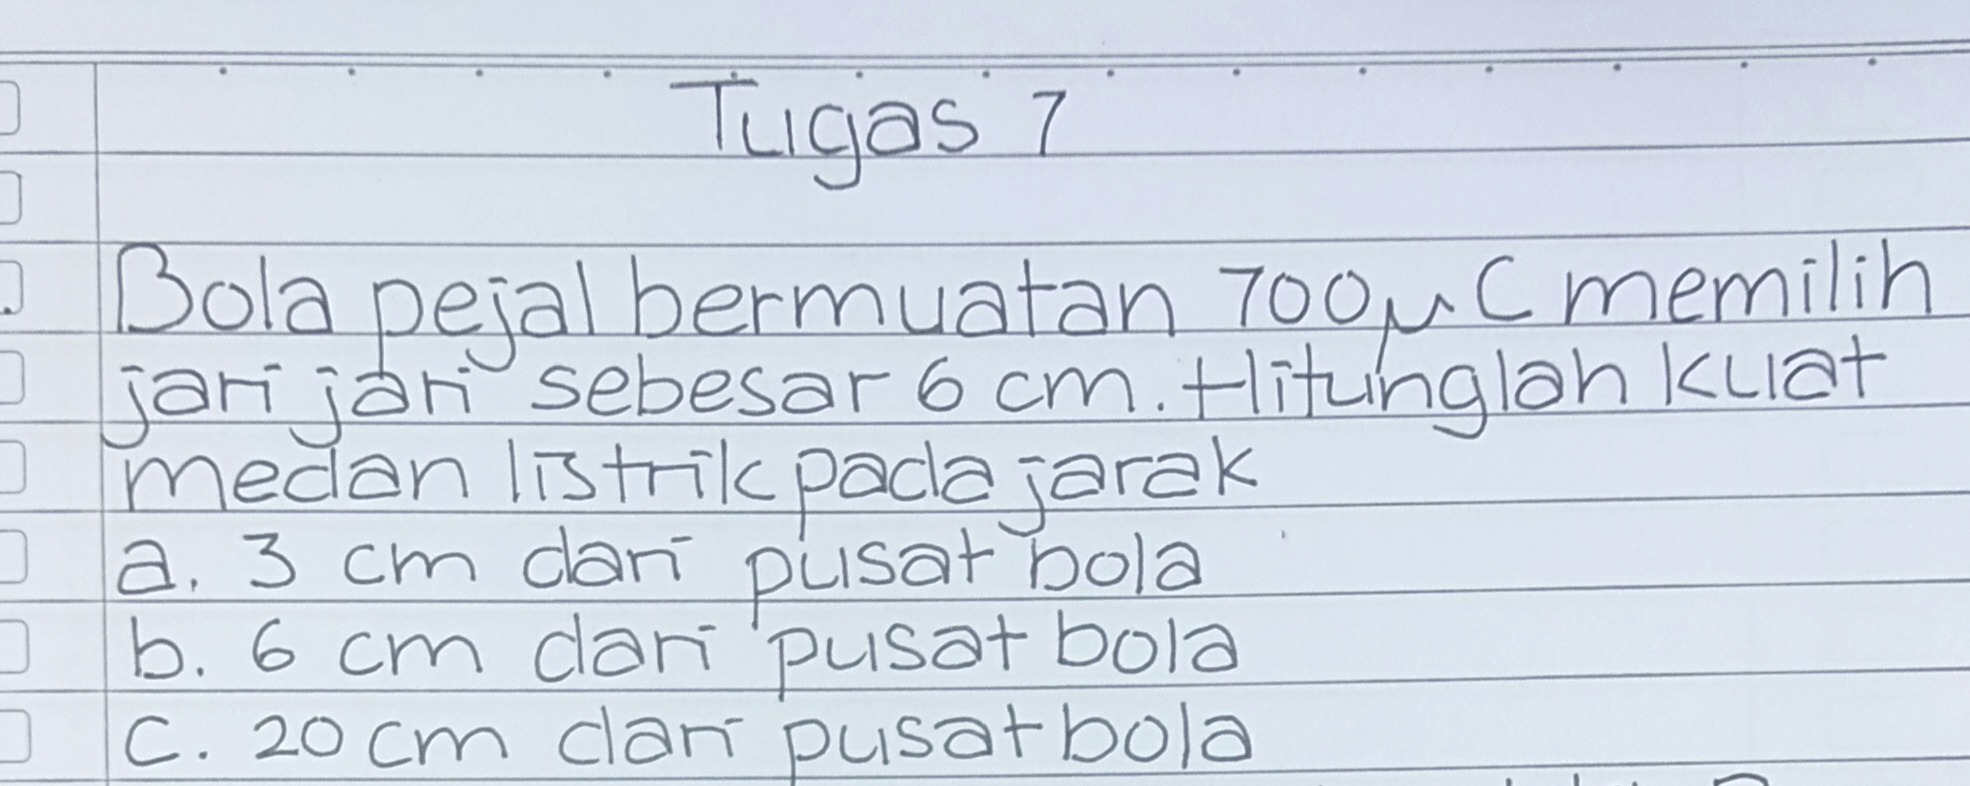 Tugas 7
Bola pejal bermuatan 700μC memilih
jari jari sebesar 6 cm. Hitunglah kuat
medan listrik pada jarak
a. 3 cm dari pusat bola
b. 6 cm dari pusat bola
c. 20 cm dari pusat bola